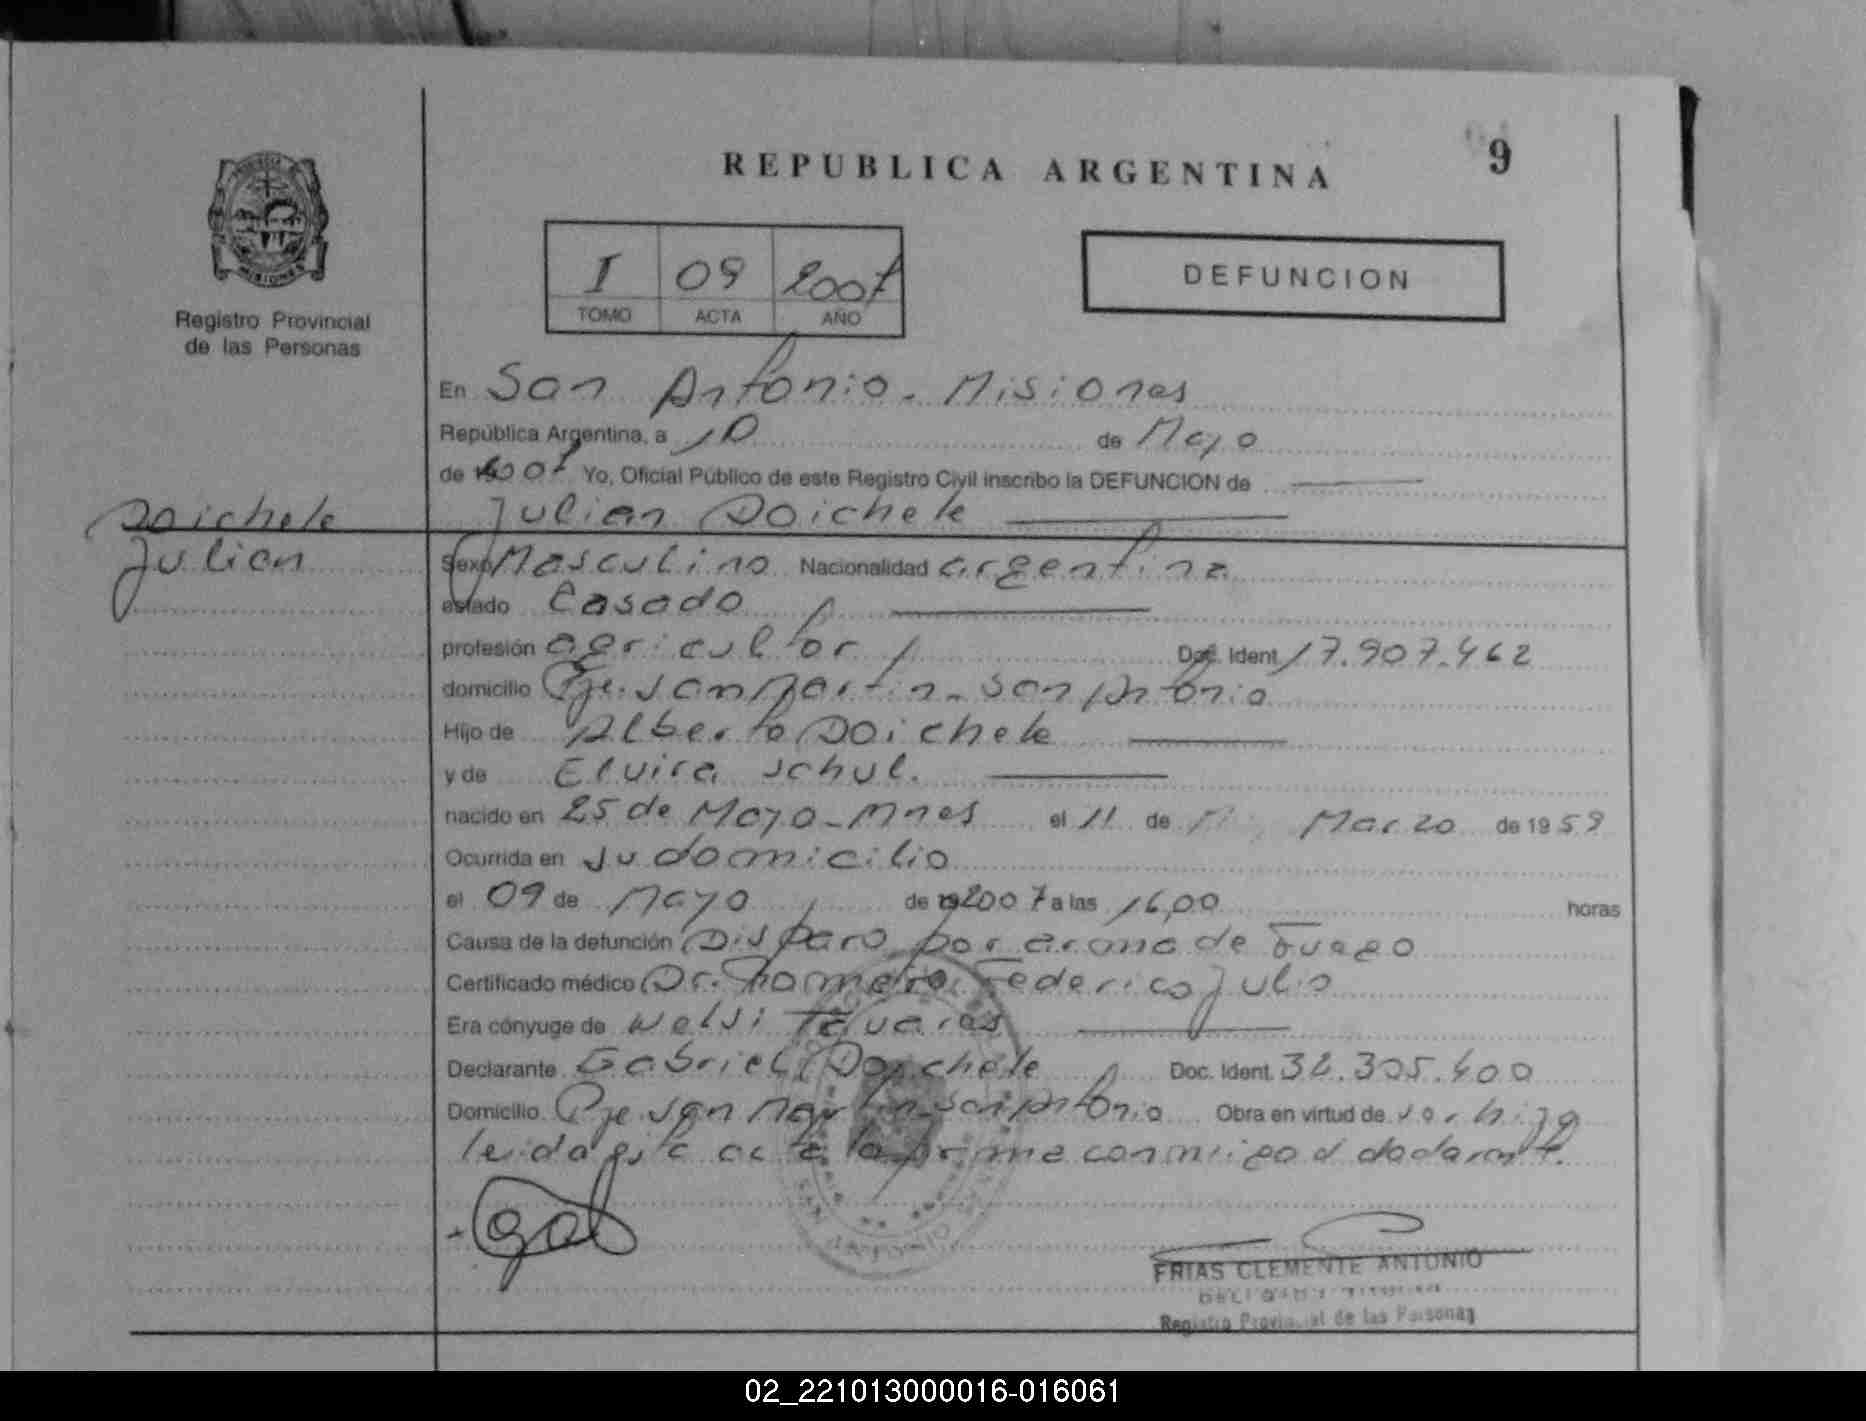 REPUBLICA ARGENTINA
9
PROVINCIA
MISIONES
Registro Provincial
de las Personas
I 09 2007
TOMO ACTA AÑO
DEFUNCION
En San Antonio - Misiones
República Argentina, a 10 de Mayo
de 2007 Yo, Oficial Público de este Registro Civil inscribo la DEFUNCION de
Doichele
Julian
Julian Doichele
Sexo Masculino Nacionalidad argentina
estado Casado
profesión agricultor Doc. Ident. 17.907.462
domicilio Pje. San Martin - San Antonio
Hijo de Alberto Doichele
y de Elvira Schul.
nacido en 25 de Mayo - Mnes el 11 de Marzo de 1959
Ocurrida en su domicilio
el 09 de Mayo de 2007 a las 16,00 horas
Causa de la defunción Disparo por arma de Fuego
Certificado médico Dr. Federico Julio
Era cónyuge de Nelsi Tavares
Declarante Gabriel Doichele Doc. Ident. 32.305.400
Domicilio Pje San Martin - San Antonio Obra en virtud de ser hijo
leida esta acta la firma conmigo el declarante.
FRIAS CLEMENTE ANTONIO
Registro Provincial de las Personas
02_221013000016-016061